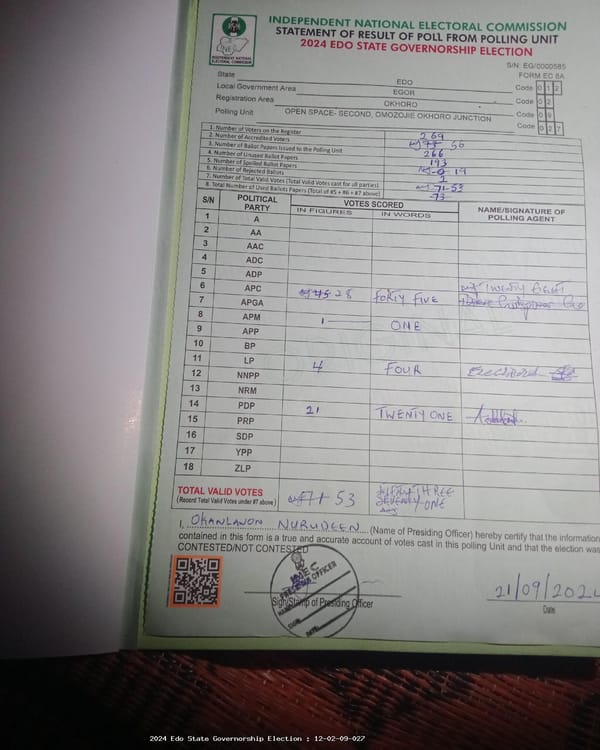 INDEPENDENT NATIONAL ELECTORAL COMMISSION
STATEMENT OF RESULT OF POLL FROM POLLING UNIT
2024 EDO STATE GOVERNORSHIP ELECTION
S/N: EG/0000585
FORM EC 8A
INDEPENDENT NATIONAL ELECTORAL COMMISSION
State EDO Code 012
Local Government Area EGOR Code 02
Registration Area OKHORO Code 09
Polling Unit OPEN SPACE- SECOND, OMOZOJIE OKHORO JUNCTION Code 027
1. Number of Voters on the Register 269
2. Number of Accredited Voters 56
3. Number of Ballot Papers Issued to the Polling Unit 266
4. Number of Unused Ballot Papers 193
5. Number of Spoiled Ballot Papers 19
6. Number of Rejected Ballots 1
7. Number of Total Valid Votes (Total Valid Votes cast for all parties) 71 53
8. Total Number of Used Ballots Papers (Total of #5 + #6 + #7 above) 73
S/N POLITICAL PARTY VOTES SCORED NAME/SIGNATURE OF POLLING AGENT
IN FIGURES IN WORDS
1 A
2 AA
3 AAC
4 ADC
5 ADP
6 APC 45 28 FORTY FIVE TWENTY EIGHT
7 APGA
8 APM 1 ONE
9 APP
10 BP
11 LP 4 FOUR
12 NNPP
13 NRM
14 PDP 21 TWENTY ONE
15 PRP
16 SDP
17 YPP
18 ZLP
TOTAL VALID VOTES 71 53 FIFTY THREE
(Record Total Valid Votes under #7 above) SEVENTY ONE
I, OKANLAWON NURUDEEN (Name of Presiding Officer) hereby certify that the information
contained in this form is a true and accurate account of votes cast in this polling Unit and that the election was
CONTESTED/NOT CONTESTED
INEC
PRESIDING OFFICER
Sign/Stamp of Presiding Officer
21/09/2024
Date
2024 Edo State Governorship Election : 12-02-09-027